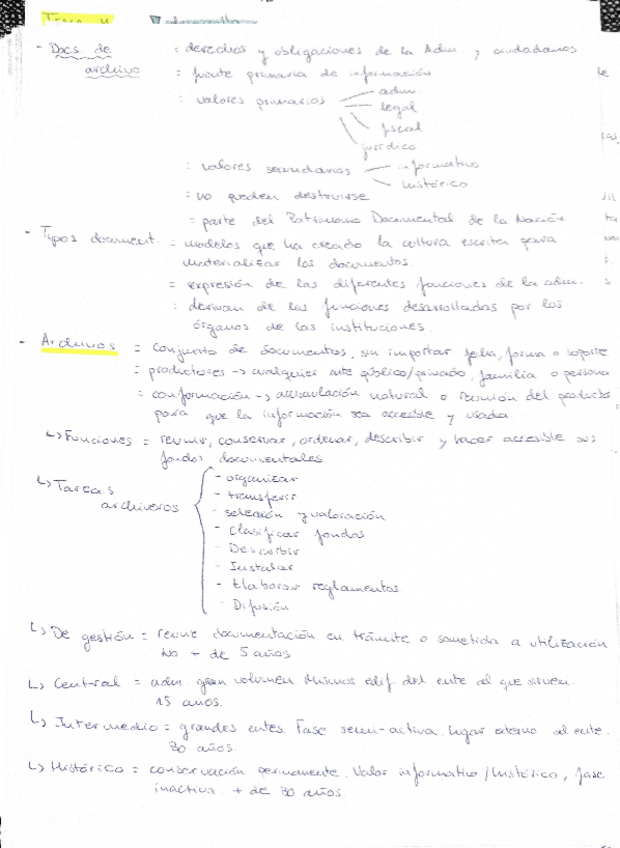 Tema
- Docs de archivo = derechos y obligaciones de la Adm y ciudadanos
: fuente primaria de información
: valores primarios
adm.
legal
fiscal
jurídico
: valores secundarios
informativo
histórico
: no pueden destruirse
= parte del Patrimonio Documental de la Nación
- Tipos document. = modelos que ha creado la cultura escrita para
materializar los documentos.
= expresión de las diferentes funciones de la adm.
: derivan de las funciones desarrolladas por los
órganos de las instituciones.
- Archivos = Conjunto de documentos, sin importar fecha, forma o soporte
= productores → cualquier ente público/privado, familia o persona
= conformación → acumulación natural o reunión del producto
para que la información sea accesible y usada.
↳ Funciones = reunir, conservar, ordenar, describir y hacer accesible sus
fondos documentales.
↳ Tareas archiveros
- organizar
- transferir
- selección y valoración
- Clasificar fondos
- Describir
- Instalar
- Elaborar reglamentos
- Difusión
↳ De gestión = reune documentación en trámite o sometida a utilización
No + de 5 años
↳ Central = adm. gran volumen. Mismos edif. del ente al que sirven.
15 años.
↳ Intermedio = grandes entes. Fase semi-activa. Lugar externo al ente.
30 años.
↳ Histórico = conservación permanente. Valor informativo/histórico, fase
inactiva. + de 30 años.